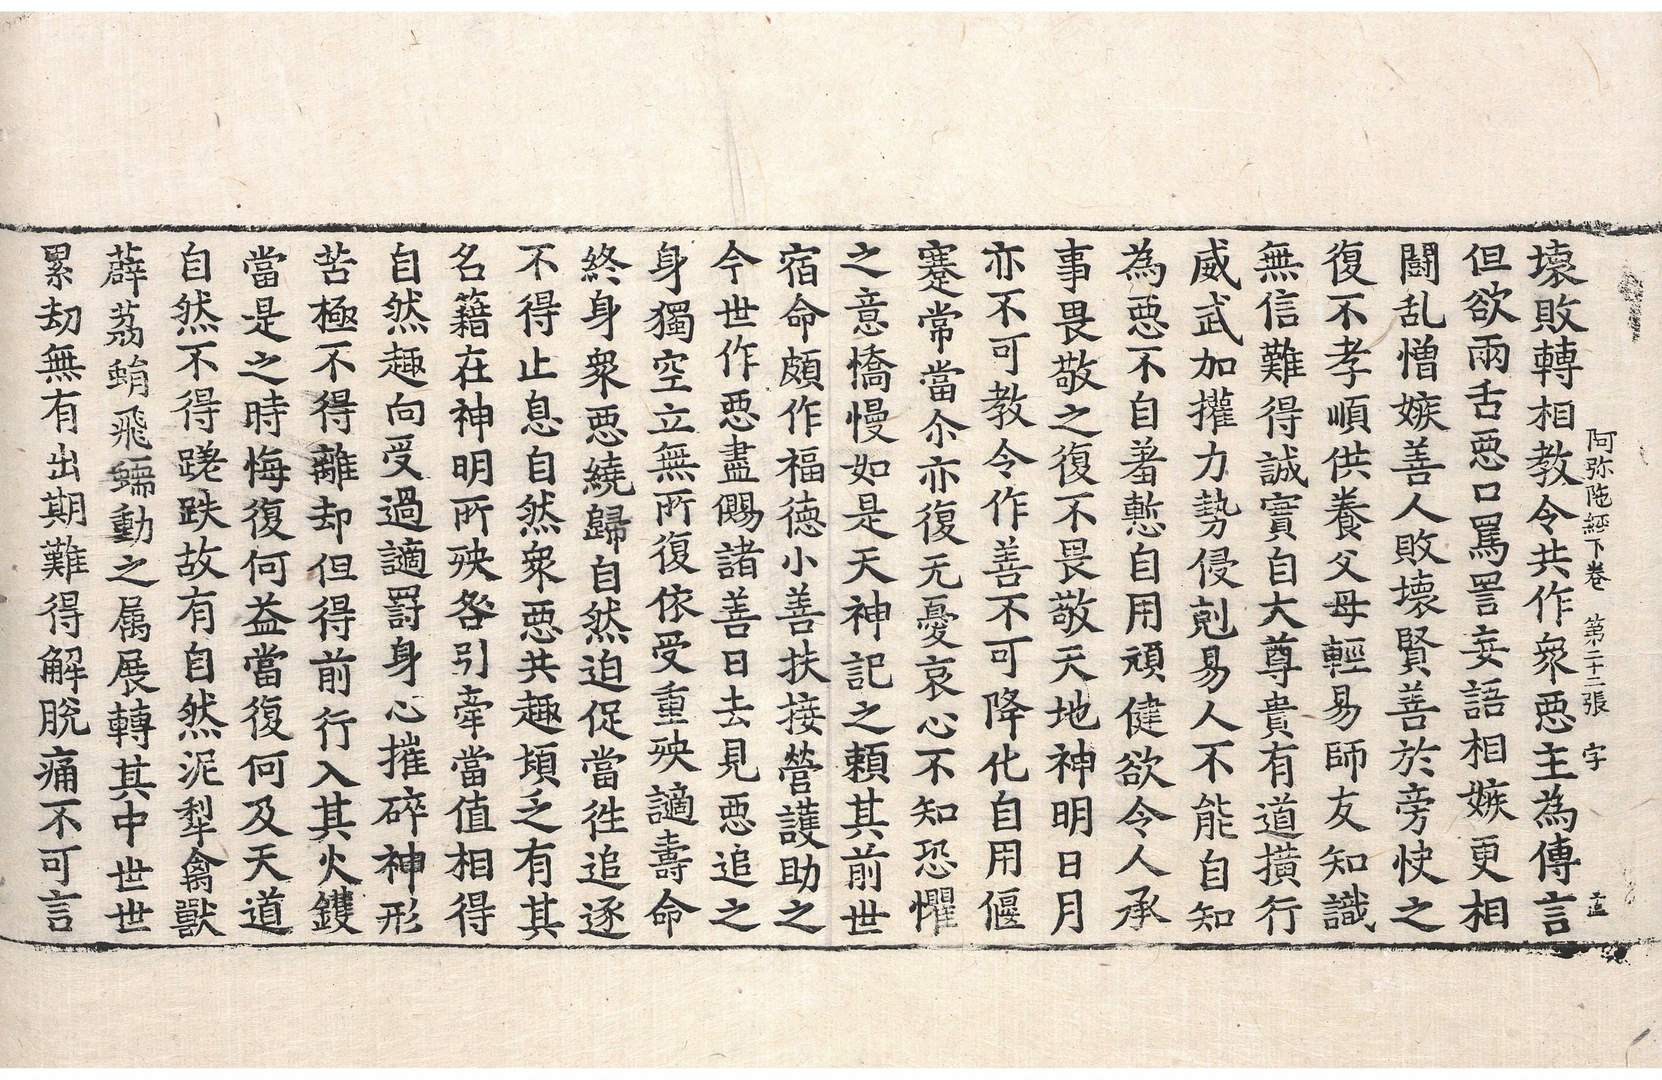 阿弥陁經下卷 第二十二張 字
壞敗轉相教令共作衆惡主為傳言
但欲兩舌惡口罵詈妄語相嫉更相
鬪乱憎嫉善人敗壞賢善於旁快之
復不孝順供養父母輕易師友知識
無信難得誠實自大尊貴有道撗行
威武加攉力勢侵剋易人不能自知
為惡不自羞慙自用頑健欲令人承
事畏敬之復不畏敬天地神明日月
亦不可教令作善不可降化自用偃
蹇常當尒亦復无憂哀心不知恐懼
之意憍慢如是天神記之頼其前世
宿命頗作福德小善扶接營護助之
今世作惡盡儩諸善日去見惡追之
身獨空立無所復依受重殃讁壽命
終身衆惡繞歸自然迫促當徃追逐
不得止息自然衆惡共趣頓乏有其
名籍在神明所殃咎引牽當值相得
自然趣向受過讁罸身心摧碎神形
苦極不得離却但得前行入其火鑊
當是之時悔復何益當復何及天道
自然不得蹉跌故有自然泥犁禽獸
薜荔蜎飛蠕動之属展轉其中世世
累劫無有出期難得解脫痛不可言